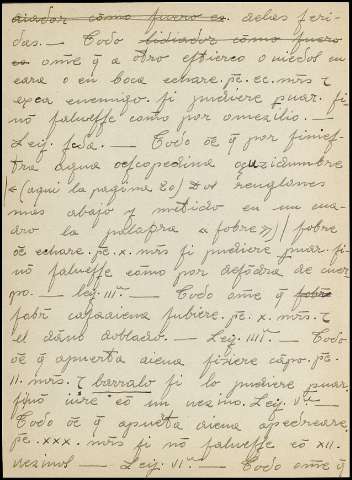 aiador como fuero es. aelas feri-
das. — Todo lidiador como fuero
es ome q̄ a otro estierco o niedos en
cara o en boca echare. pē. cc. mr̄s ⁊
exca enemigo. si pudiere puar. si
nō salvesse como por omezilio. —
Ley. seda. — Todo ōe q̄ por finies-
tra agua oescopedina ozuzidumbre
(aqui la pagina 20) Dos renglones
mas abajo y metido en un cua-
dro la palabra "sobre") // sobre
ōe echare. pē. x. mr̄s si pudiere puar. si
nō salvesse cōmo por desōdra de cuer-
po. — Ley. IIIª. — Todo ome q̄ sobre
sobr̄ casaaiena subiere. pē. x. mr̄s. ⁊
el dāno doblado. — Ley. IIIIª. — Todo
ōe q̄ apuerta aiena fiziere cāpo. pē.
II. mr̄s. ⁊ barralo si lo pudiere puar.
sinō iure cō un vezino. Ley. Vª. —
Todo ōe q̄ apuēta aiena apedreare.
pē. xxx. mr̄s si nō salvesse cō XII.
vezinos — Ley. VIª. — Todo ome q̄